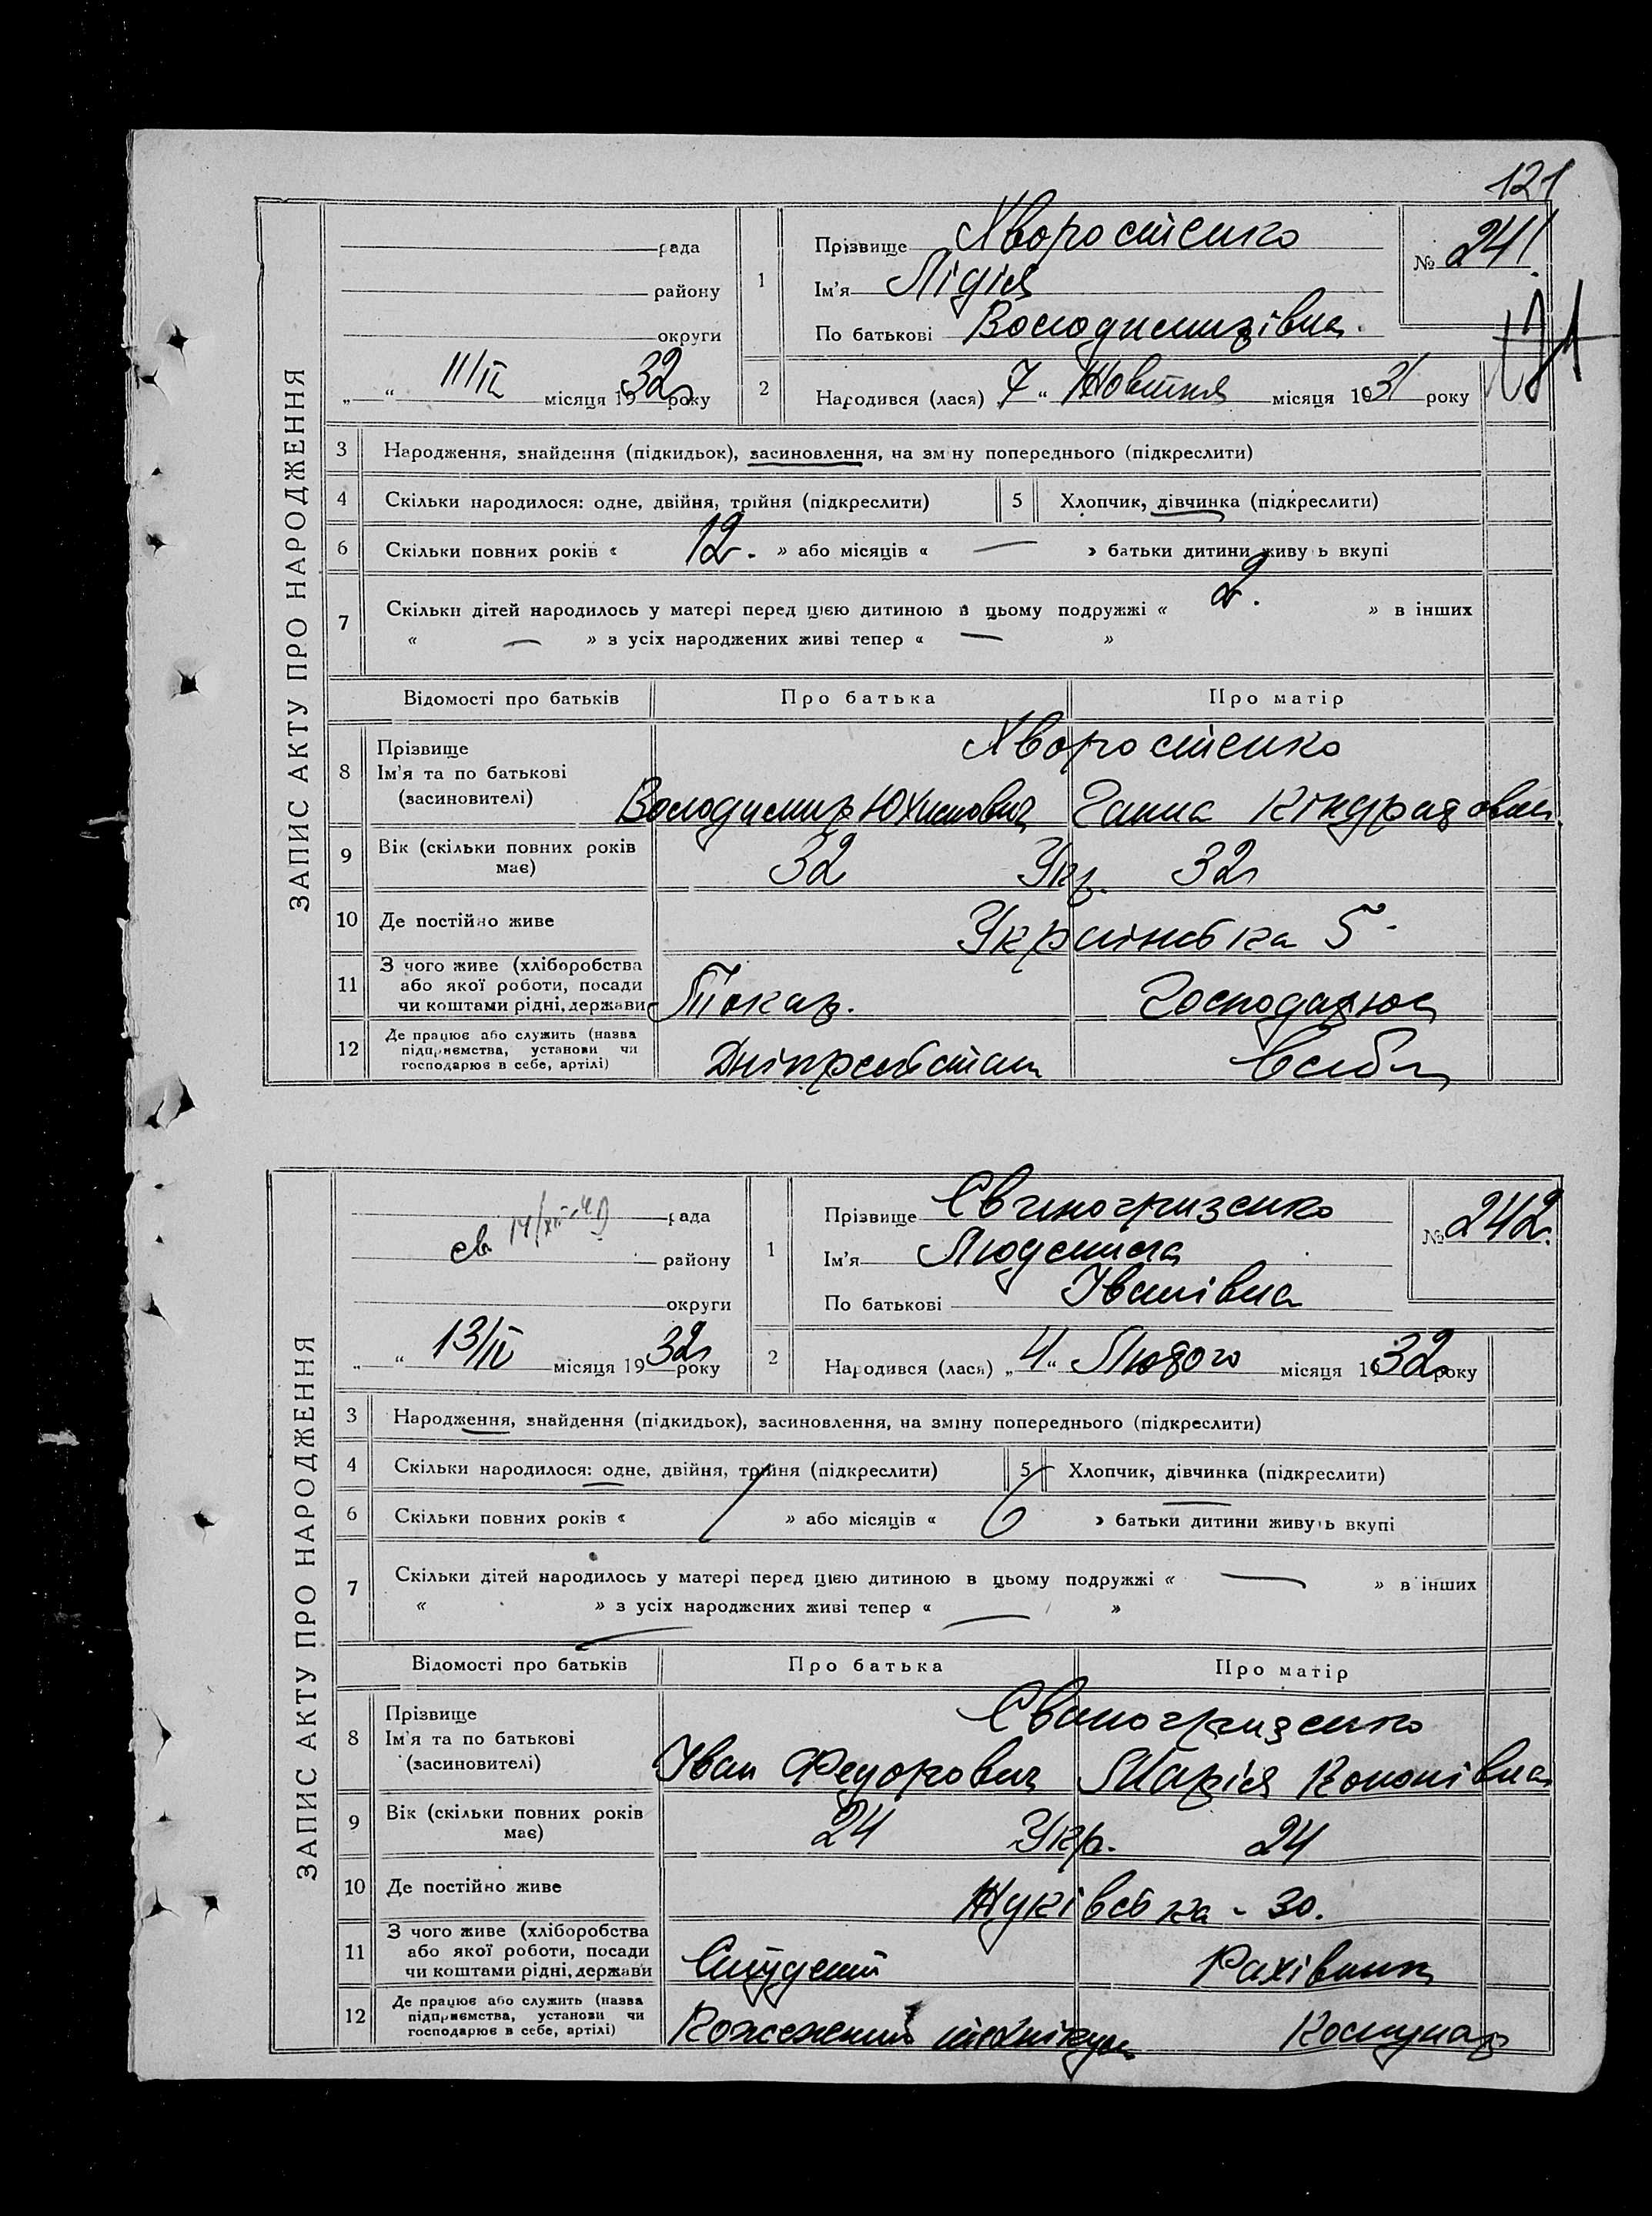 121
ЗАПИС АКТУ ПРО НАРОДЖЕННЯ
рада
району
округи
„ “ 11/IV місяця 1932 року
1 Прізвище Хворостенко
Ім'я Лідія
По батькові Володимирівна.
№ 241.
2 Народився (лася) „7“ Жовтня місяця 1931 року
3 Народження, знайдення (підкидьок), засиновлення, на зміну попереднього (підкреслити)
4 Скільки народилося: одне, двійня, трійня (підкреслити) 5 Хлопчик, дівчинка (підкреслити)
6 Скільки повних років « 12. » або місяців « — » батьки дитини живуть вкупі
7 Скільки дітей народилось у матері перед цією дитиною в цьому подружжі « 2. » в інших
« — » з усіх народжених живі тепер « — »
Відомості про батьків Про батька Про матір
8 Прізвище
Ім'я та по батькові
(засиновителі)
Хворостенко
Володимир Юхимович Ганна Кіндратовна
9 Вік (скільки повних років має) 32 Укр. 32
10 Де постійно живе Українська 5
11 З чого живе (хліборобства
або якої роботи, посади
чи коштами рідні, держави
Токар. Господарює
12 Де працює або служить (назва
підприємства, установи чи
господарює в себе, артілі)
в себе
ЗАПИС АКТУ ПРО НАРОДЖЕННЯ
рада
св. району
округи
„ “ 13/IV місяця 1932 року
1 Прізвище Свиногризенко
Ім'я Людмила
По батькові Іванівна
№ 242.
2 Народився (лася) „4“ Лютого місяця 1932 року
3 Народження, знайдення (підкидьок), засиновлення, на зміну попереднього (підкреслити)
4 Скільки народилося: одне, двійня, трійня (підкреслити) 5 Хлопчик, дівчинка (підкреслити)
6 Скільки повних років « 1 » або місяців « 6 » батьки дитини живуть вкупі
7 Скільки дітей народилось у матері перед цією дитиною в цьому подружжі « — » в інших
« — » з усіх народжених живі тепер « — »
Відомості про батьків Про батька Про матір
8 Прізвище
Ім'я та по батькові
(засиновителі)
Свиногризенко
Іван Федорович Марія Кононівна
9 Вік (скільки повних років має) 24 Укр. 24
10 Де постійно живе Жуківська - 30.
11 З чого живе (хліборобства
або якої роботи, посади
чи коштами рідні, держави
Студент Рахівник
12 Де працює або служить (назва
підприємства, установи чи
господарює в себе, артілі)
технікум Комунар